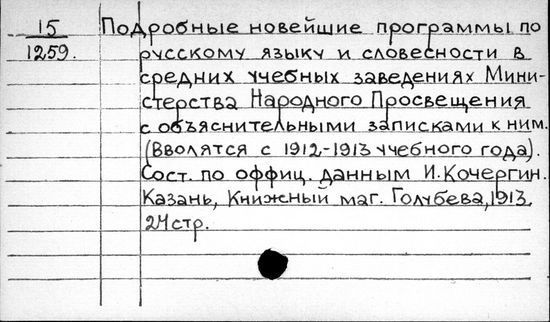 15 Подробные новейшие программы по
1259. русскому языку и словесности в
средних учебных заведениях Мини-
стерства Народного Просвещения
с объяснительными записками к ним.
(Вводятся с 1912-1913 учебного года).
Сост. по оффиц. данным И. Кочергин.
Казань, Книжный маг. Голубева, 1913.
24 стр.